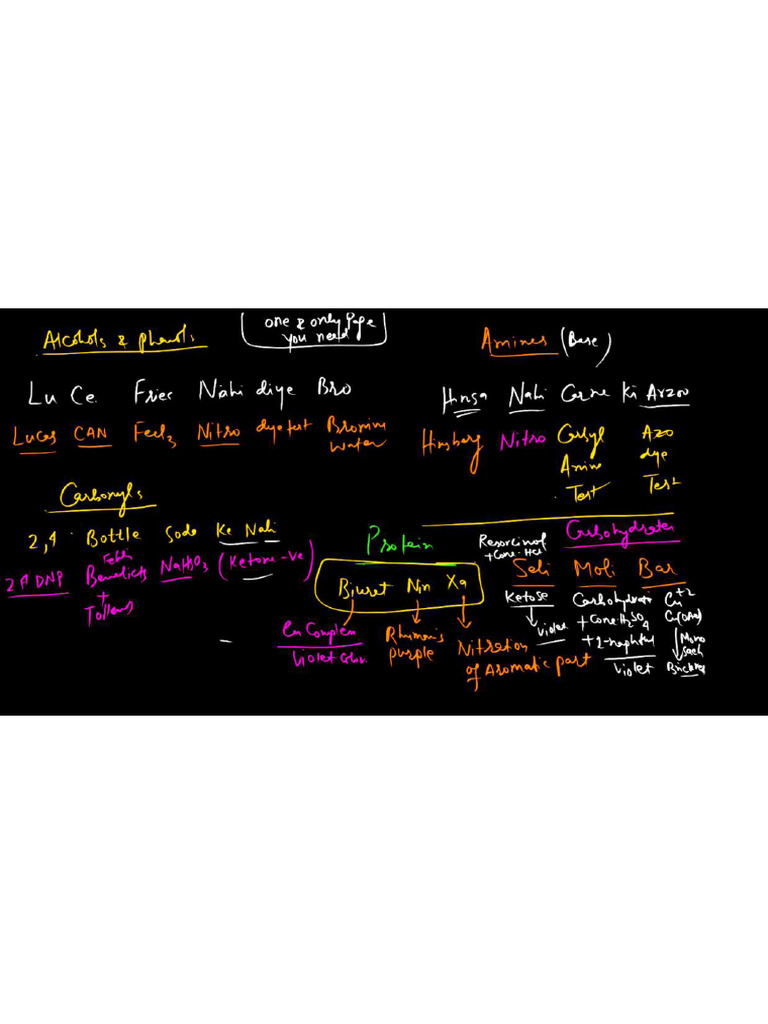 Alcohols & phenols
one & only Page
you need
Amines (Base)
Lu Ce Friec Nahi diye Bro
Lucas CAN Fecl3 Nitro dye test Bromine
water
Hinsa Nahi Carne Ki Arzoo
Hinsberg Nitro Carbyl Azo
Amine dye
Test Test
Carbonyls
2,4 Bottle Soda Ke Nahi
2,4 DNP Fehli
Benedicts NaHSO3 (Ketone -ve)
+
Tollens
Protein
Biuret Nin Xa
Cu Complex
Violet Colour
Rhumen's
purple
Nitration
of Aromatic part
Carbohydrates
Resorcinol
+ conc. HCl
Seli Moli Bar
Ketose
Violet
Carbohydrate
+ conc H2SO4
+ 2-naphthol
Violet
Cu+2
Cu(OAc)
Mono
Sach